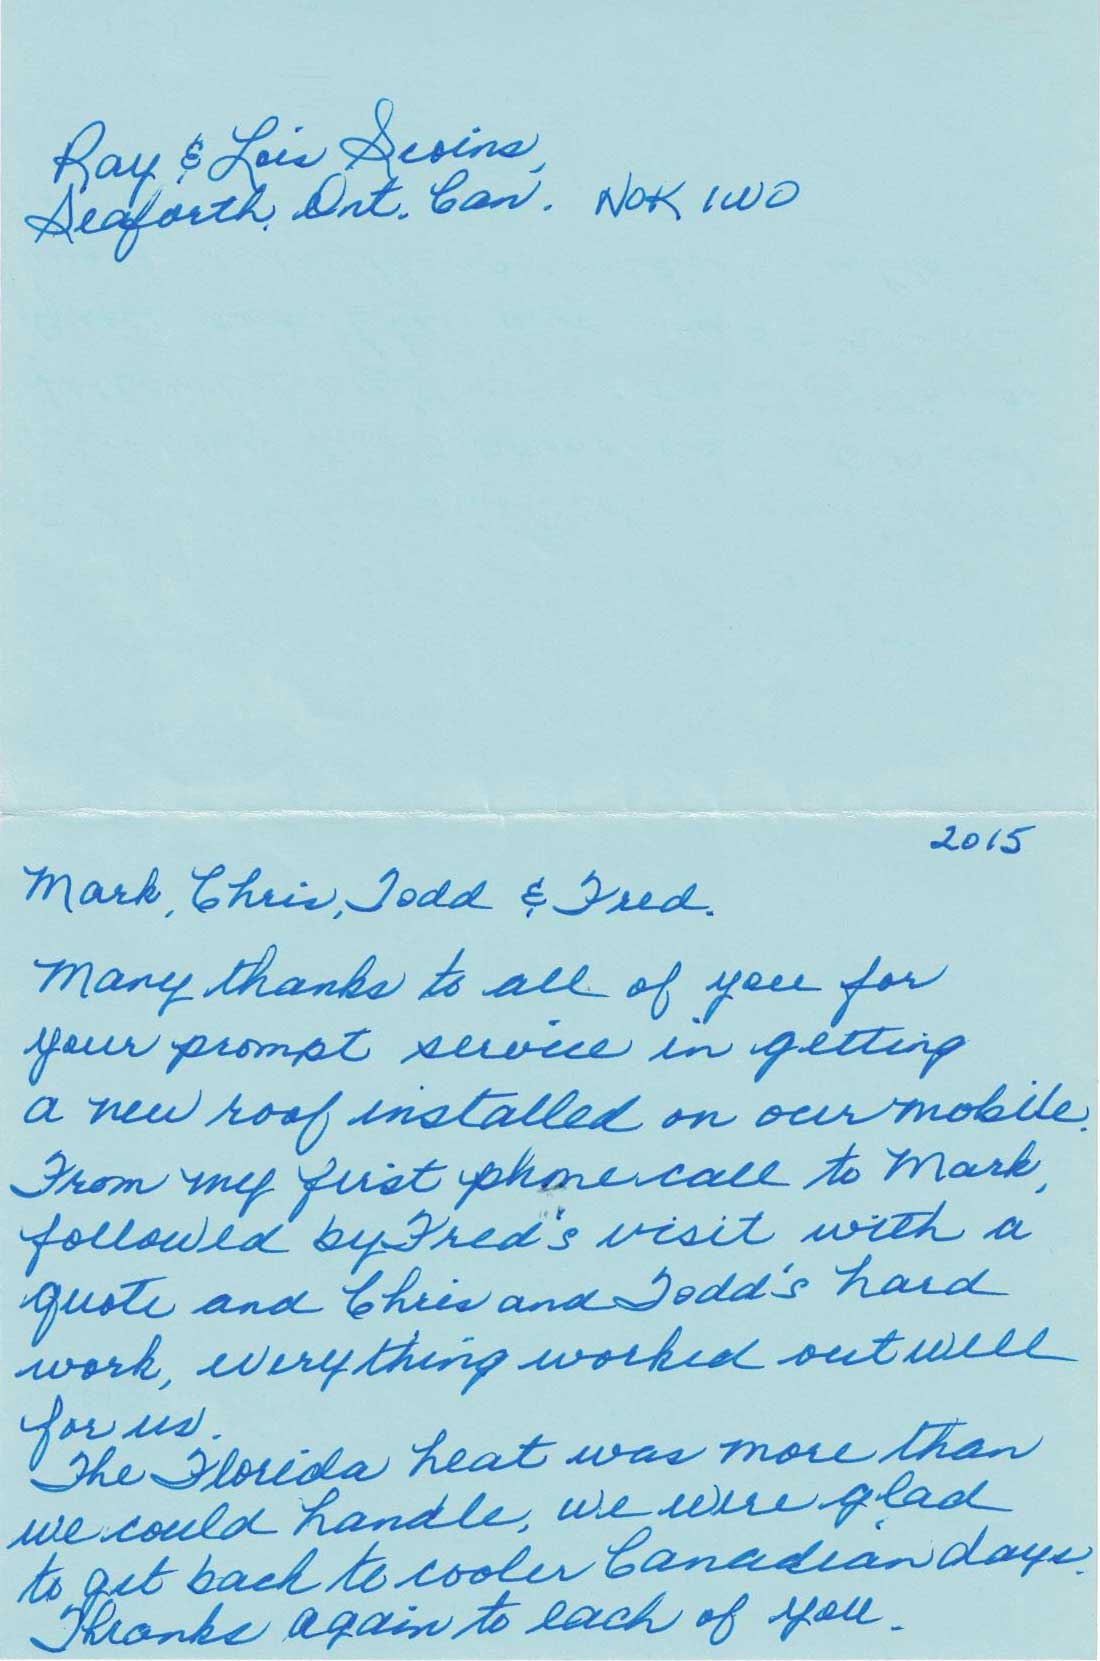 Ray & Lois Scoins,
Seaforth, Ont. Can. N0K 1W0
2015
Mark, Chris, Todd & Fred.
Many thanks to all of you for
your prompt service in getting
a new roof installed on our mobile.
From my first phone call to Mark,
followed by Fred's visit with a
quote and Chris and Todd's hard
work, everything worked out well
for us.
The Florida heat was more than
we could handle, we were glad
to get back to cooler Canadian days.
Thanks again to each of you.